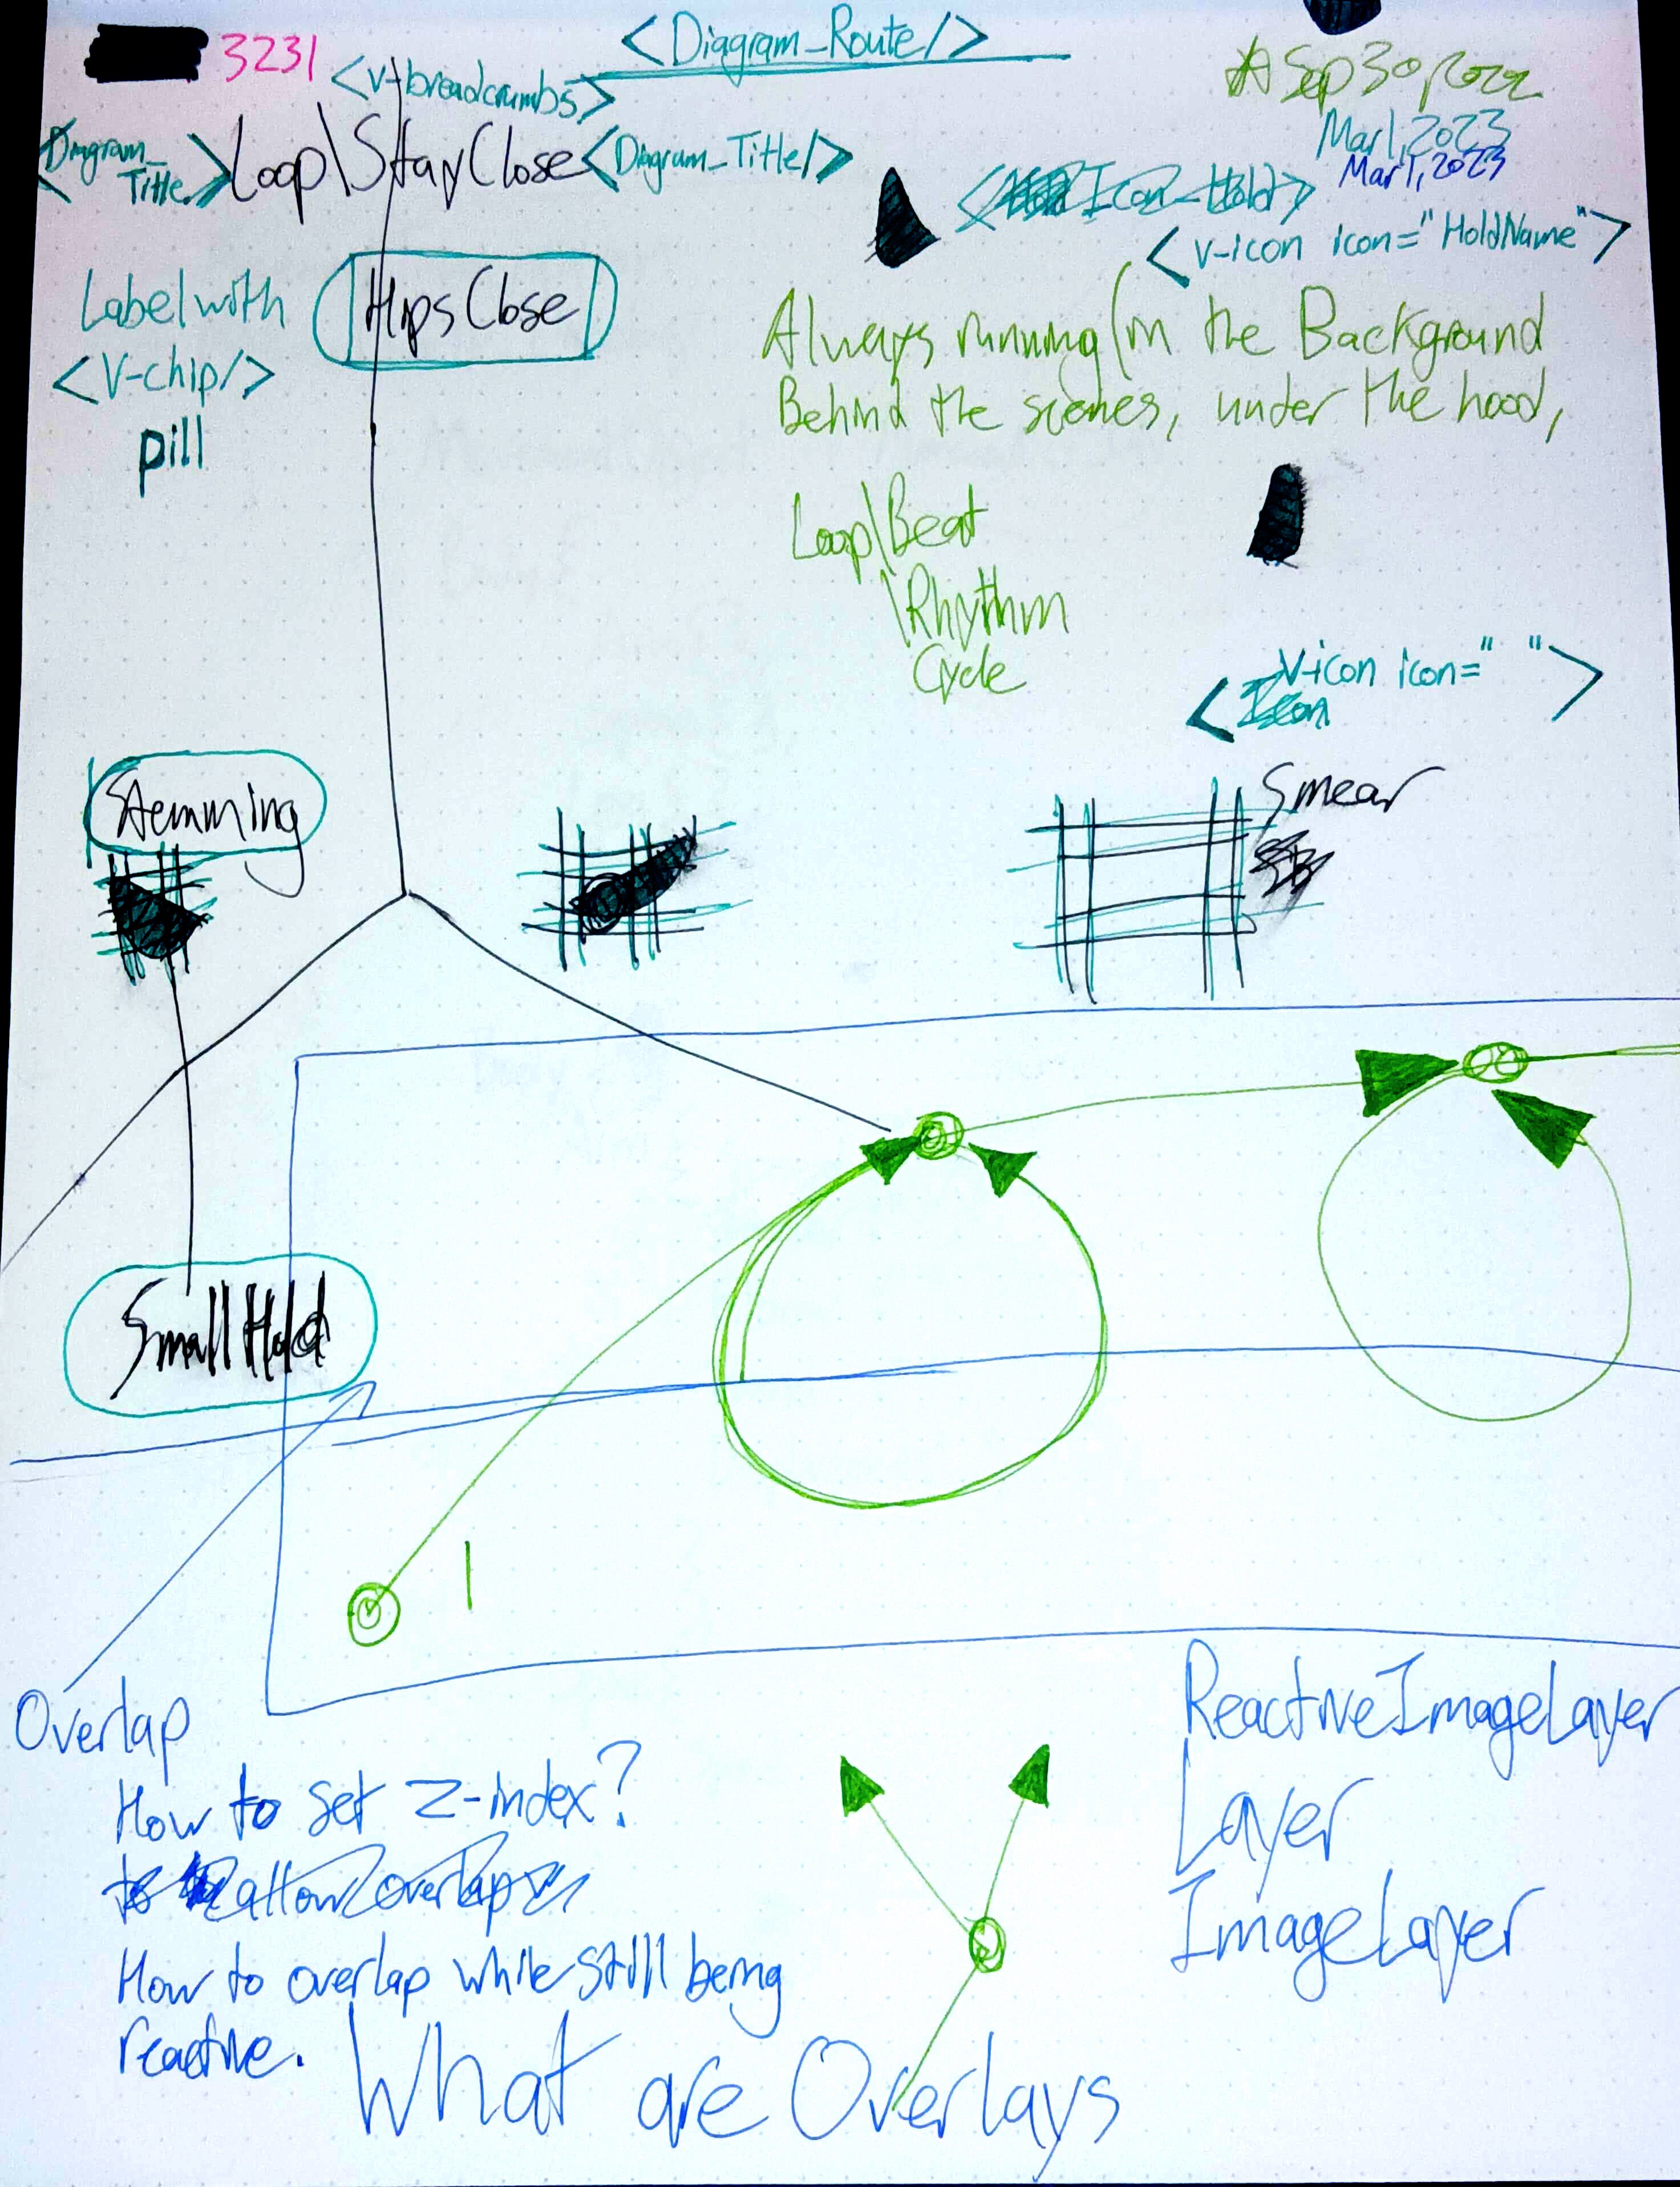 3231
<Diagram_Route/>
<v-breadcrumbs>
Sep 30, 2022
Mar 1, 2023
Mar 1, 2023
<Diagram_
Title>
Loop\StayClose
<Diagram_Title/>
Icon_Hold>
<v-icon icon="HoldName">
Label with
<V-chip/>
pill
HipsClose
Always running (in the Background
Behind the scenes, under the hood,
Loop\Beat
\Rhythm
Cycle
<v-icon icon=" ">
Icon
Stemming
Smear
SmallHold
1
Overlap
How to set z-index?
to allow overlap
How to overlap while still being
reactive.
What are Overlays
ReactiveImageLayer
Layer
ImageLayer